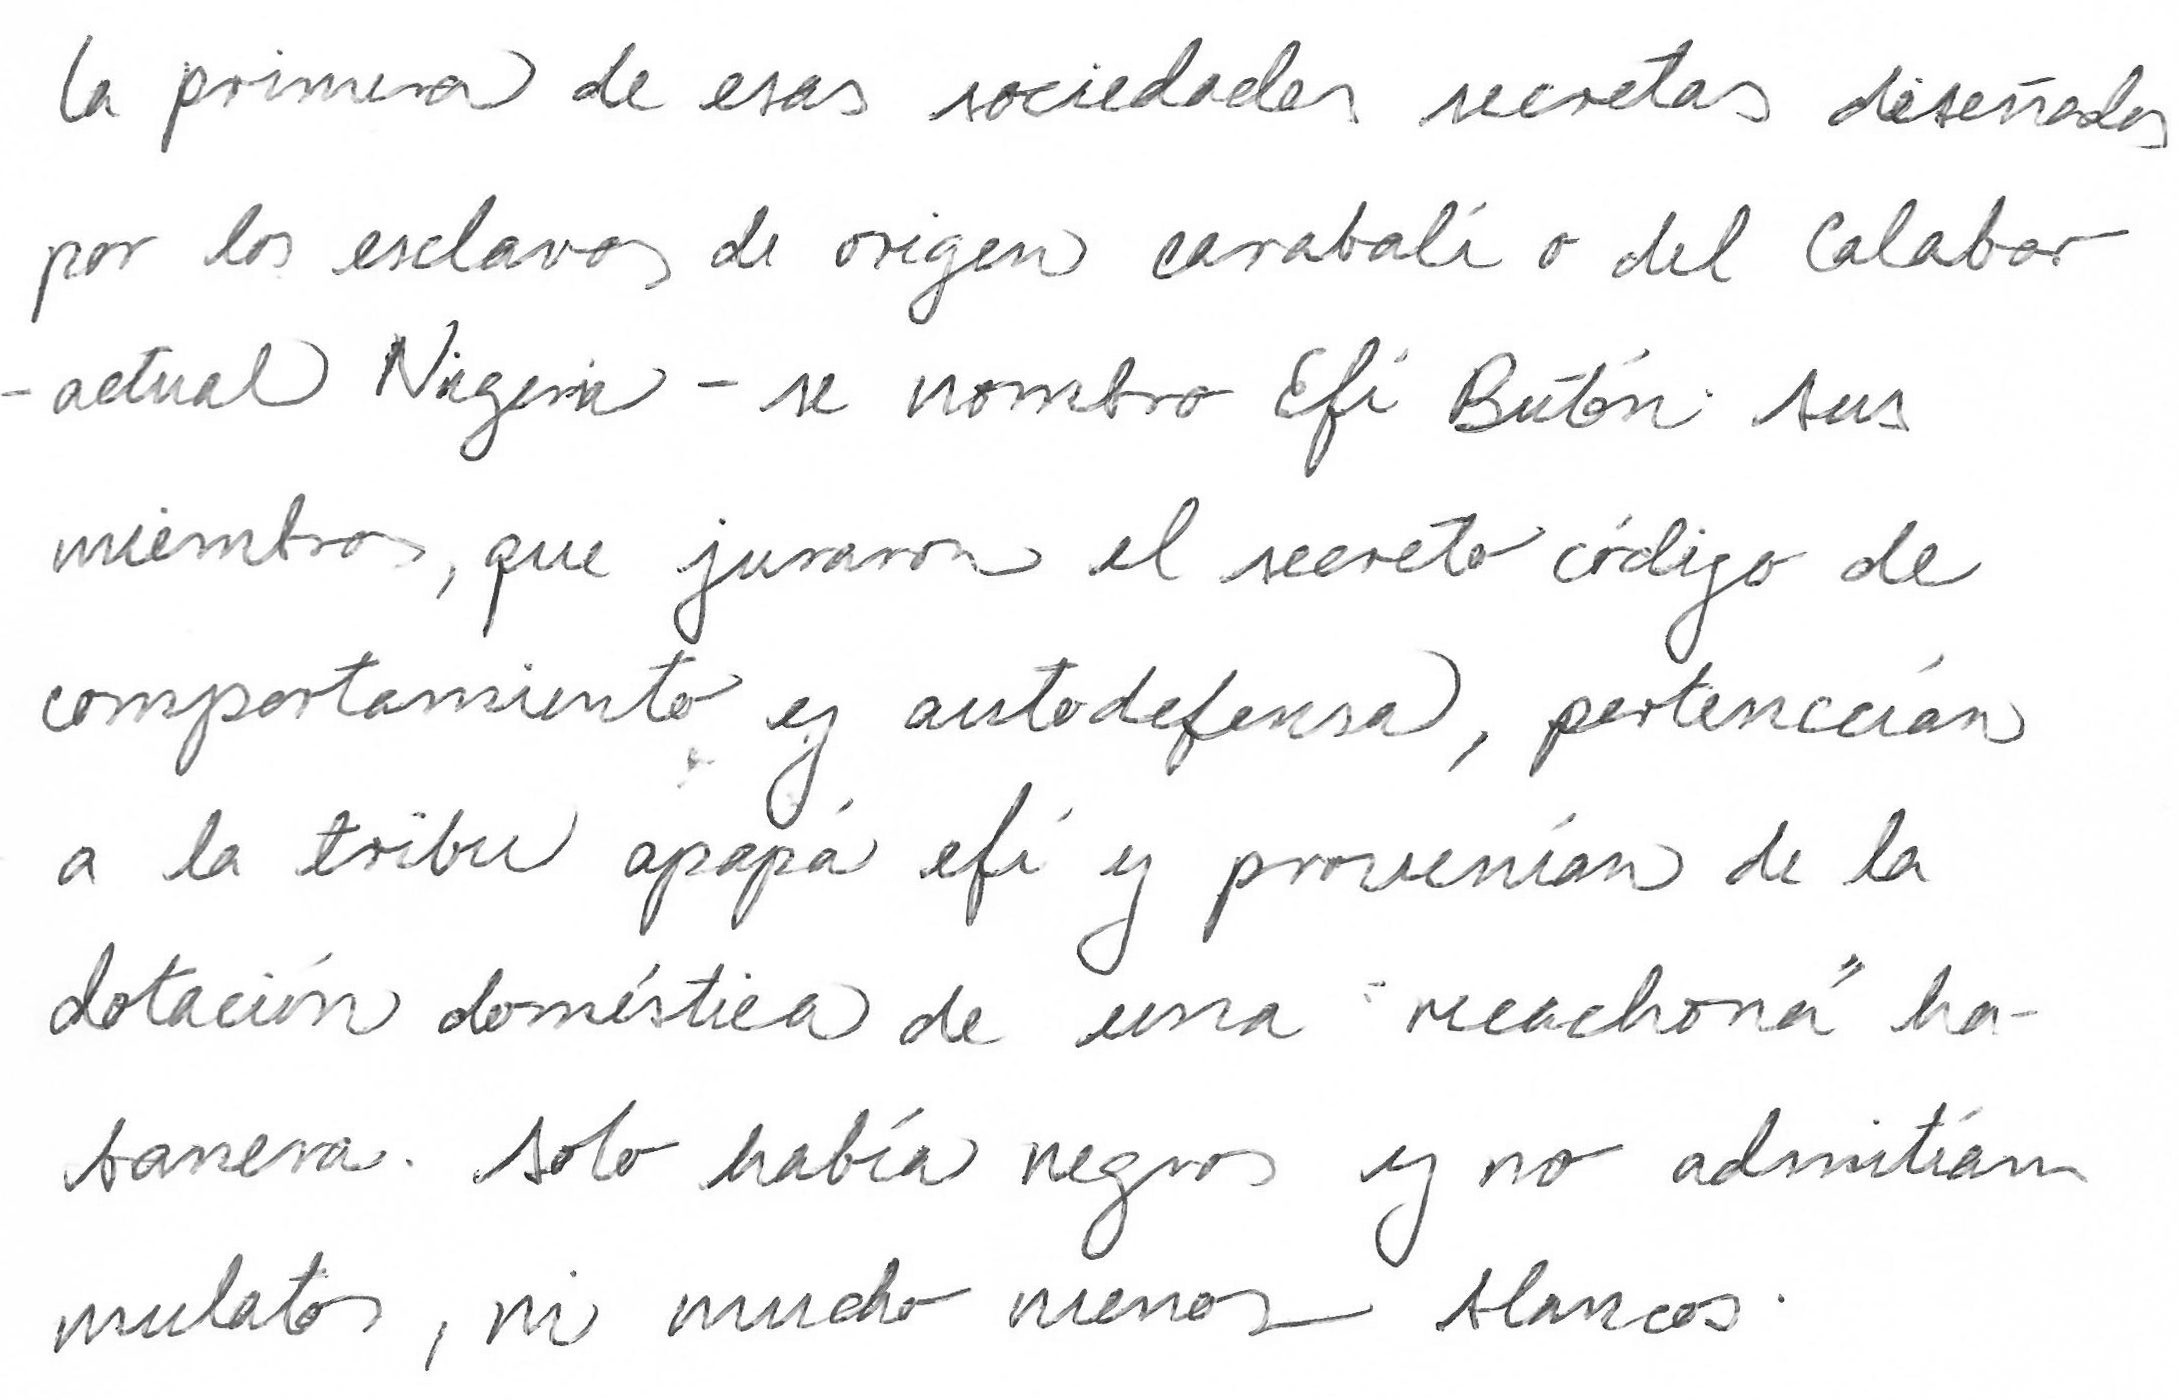 La primera de esas sociedades secretas diseñadas
por los esclavos de origen carabalí o del Calabar
- actual Nigeria - se nombro Efí Butón. Sus
miembros, que juraron el secreto código de
comportamiento y autodefensa, pertenecían
a la tribu apapá efí y provenían de la
dotación doméstica de una "ricachona" ha-
banera. Solo había negros y no admitían
mulatos, ni mucho menos blancos.